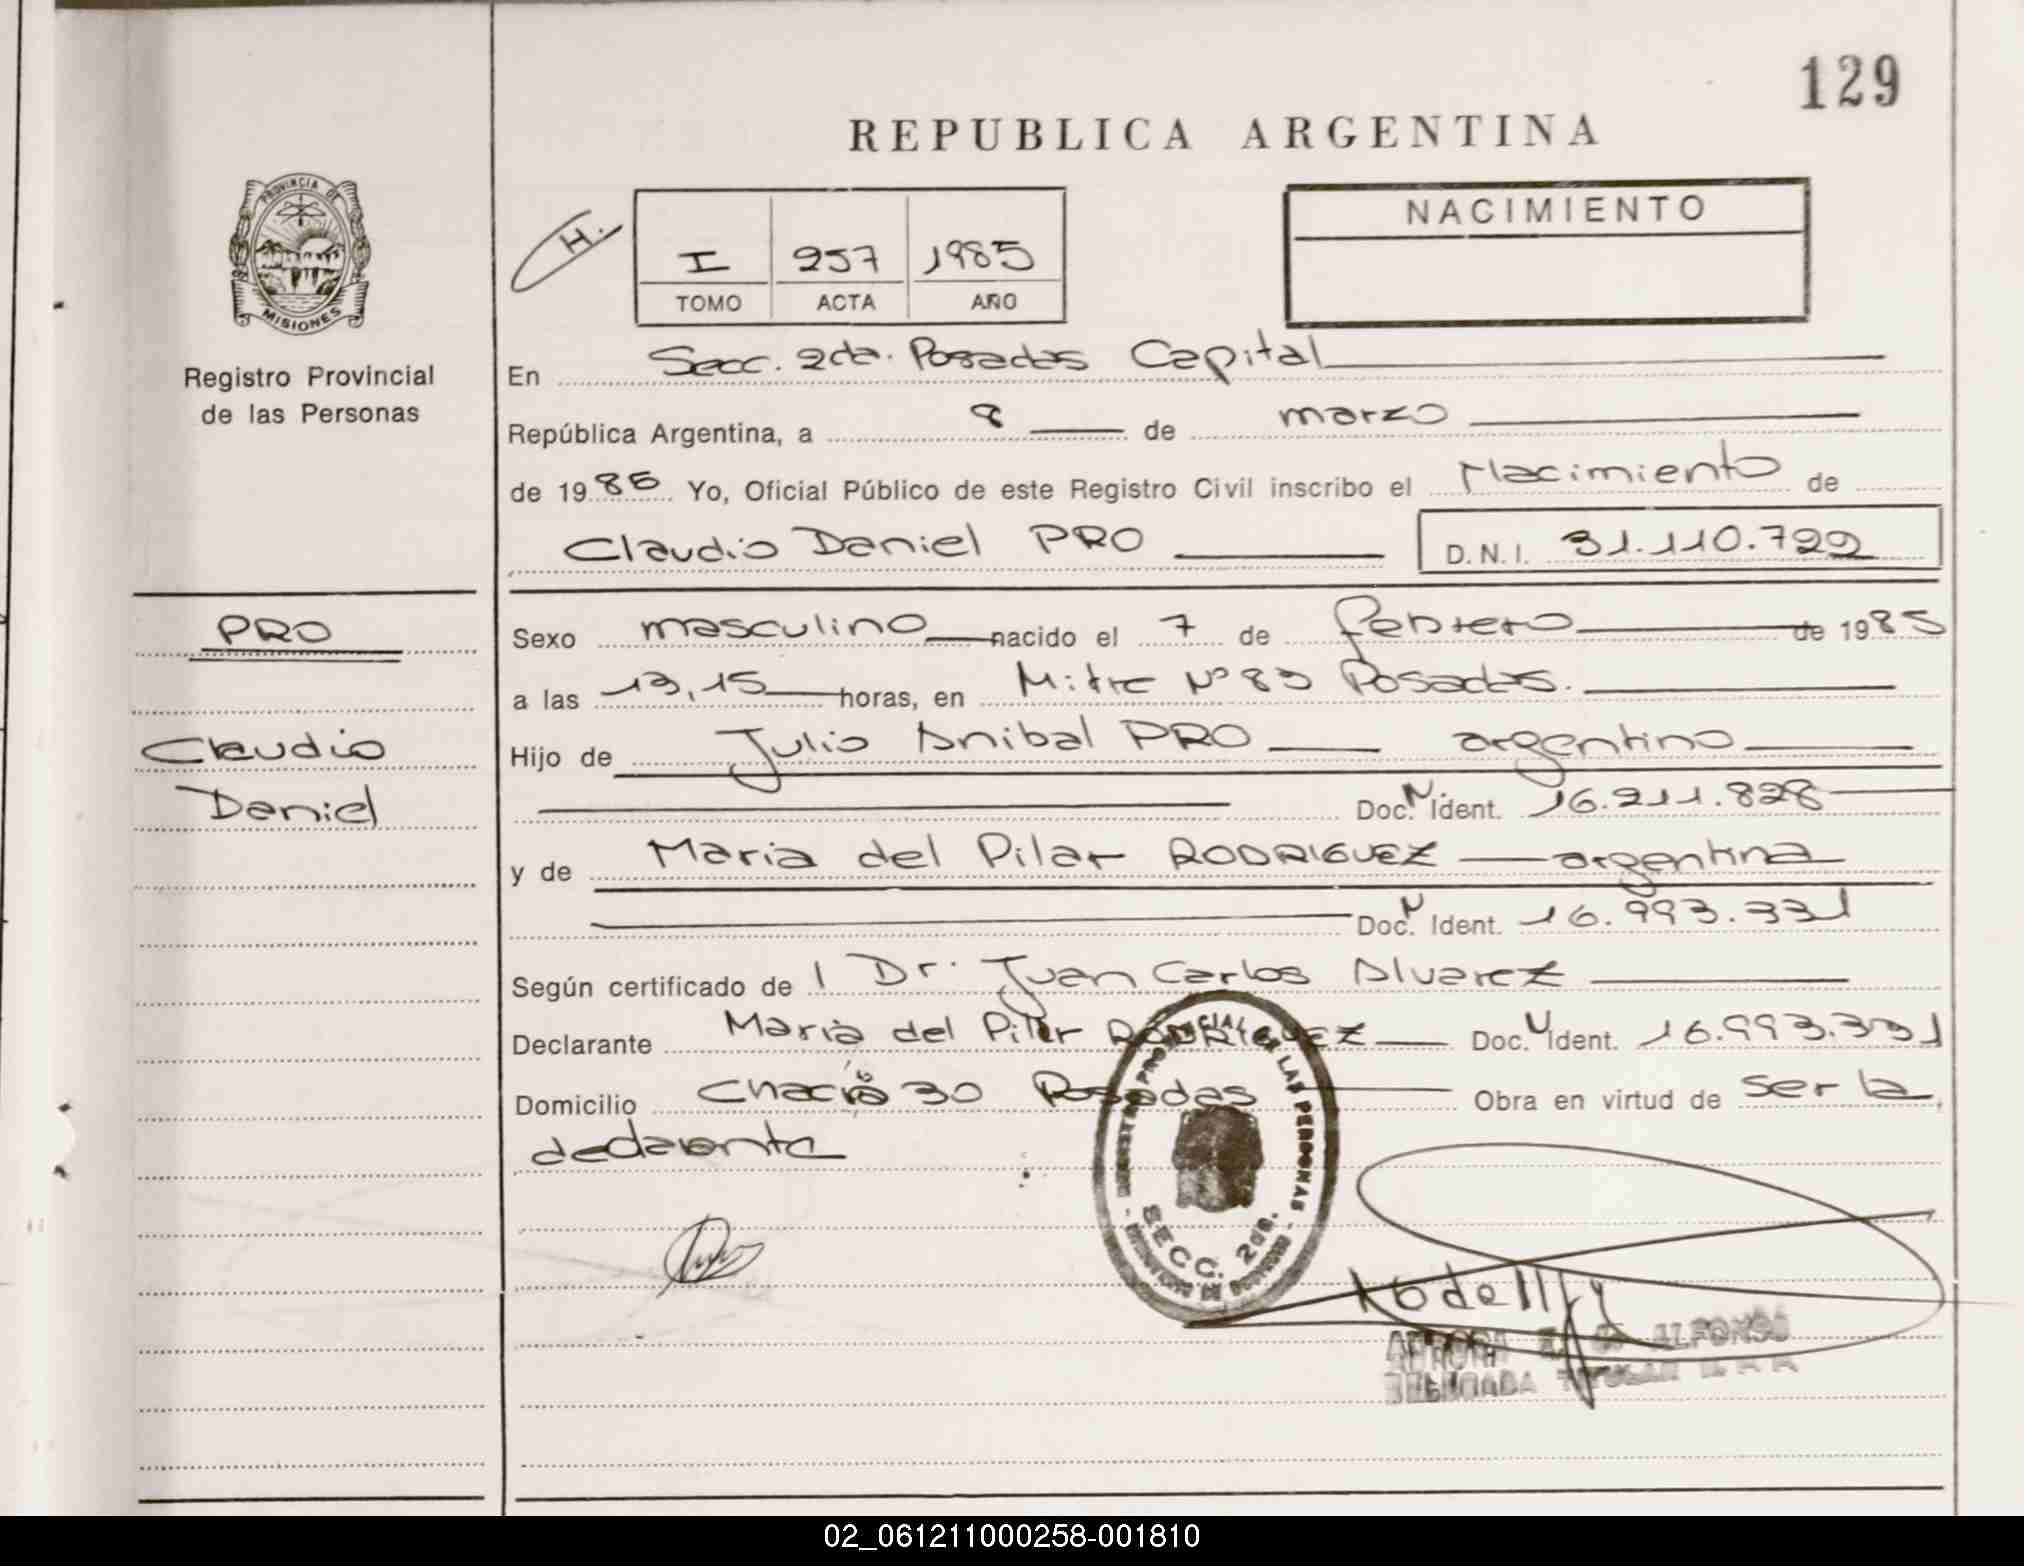 129
REPUBLICA ARGENTINA
PROVINCIA DE
MISIONES
Registro Provincial
de las Personas
H.
I 257 1985
TOMO ACTA AÑO
NACIMIENTO
En Secc. 2da. Posadas Capital
República Argentina, a 8 de marzo
de 1985 Yo, Oficial Público de este Registro Civil inscribo el Nacimiento de
Claudio Daniel PRO D.N.I. 31.110.722
PRO
Claudio
Daniel
Sexo masculino nacido el 7 de febrero de 1985
a las 13,15 horas, en Mitre Nº 83 Posadas.
Hijo de Julio Anibal PRO argentino
Doc. N. Ident. 16.211.828
y de Maria del Pilar RODRIGUEZ argentina
Doc. N Ident. 16.993.331
Según certificado de l Dr. Juan Carlos Alvarez
Declarante Maria del Pilar RODRIGUEZ Doc. N Ident. 16.993.331
Domicilio Chacra 30 Posadas Obra en virtud de ser la
declarante
PROVINCIAL DE LAS PERSONAS
SECC. 2da.
AURORA DE ALFONSO
DELEGADA TITULAR
02_061211000258-001810